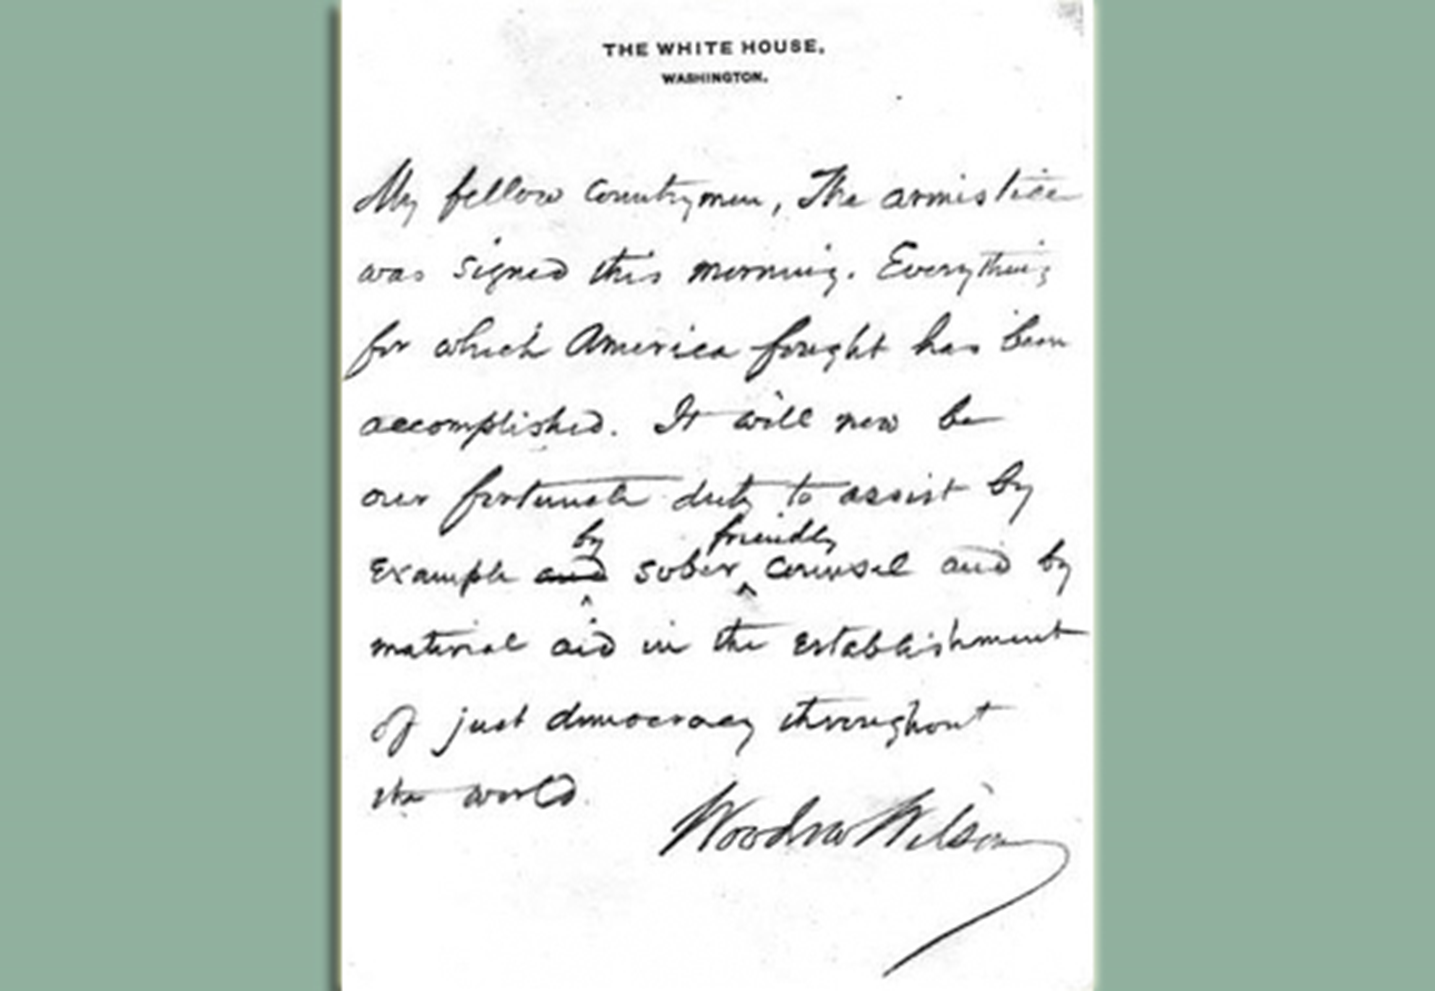 THE WHITE HOUSE,
WASHINGTON.
My fellow Countrymen, The armistice
was signed this morning. Everything
for which America fought has been
accomplished. It will now be
our fortunate duty to assist by
by friendly
example and sober counsel and by
material aid in the establishment
of just democracy throughout
the world.
Woodrow Wilson